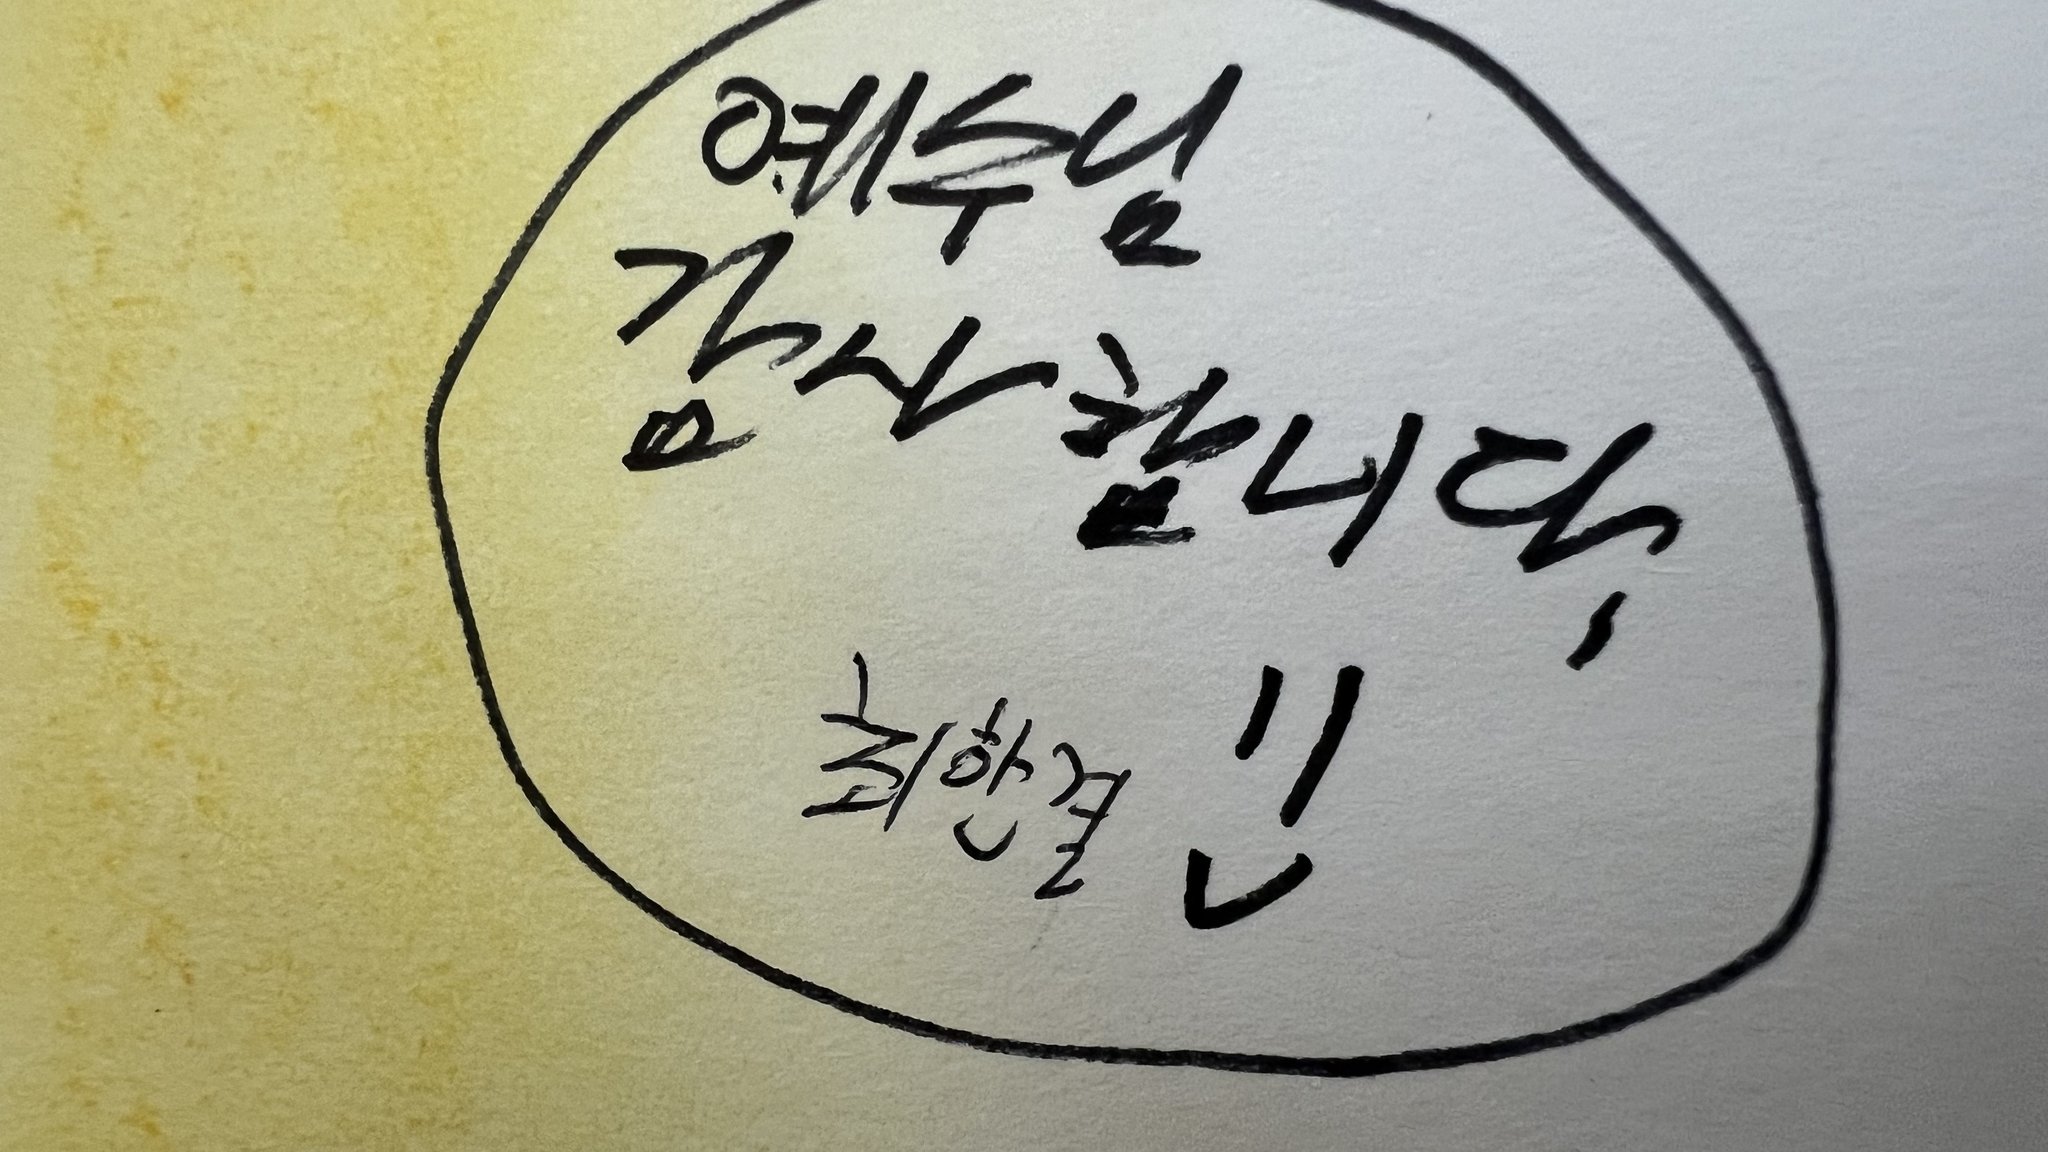 예수님
감사합니다.
최한결